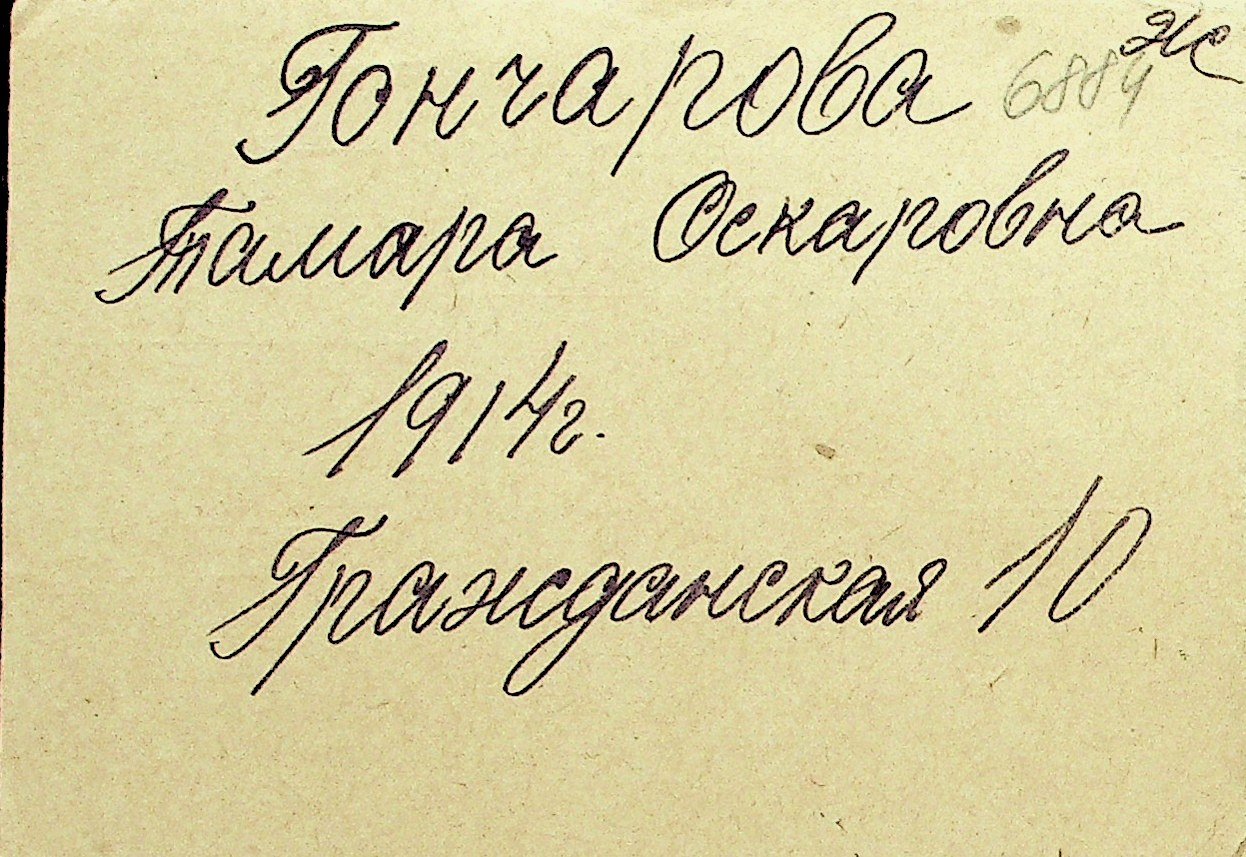 Гончарова 6884 Ж
Тамара Оскаровна
1914г.
Гражданская 10